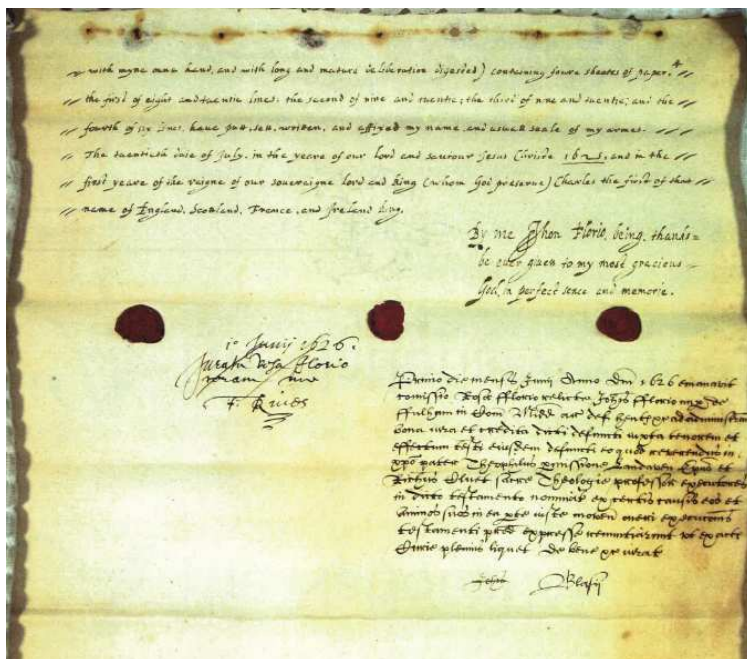 with myne owne hand, and with long and mature deliberation digested) contayning foure sheates of paper, 4
the first of eight and twentie lines; the second of nine and twentie; the third of nine and twentie; and the
fourth of six lines, have putt, sett, written, and affixed my name, and usuall seale of my armes.
The twentith daie of July, in the yeare of our lord and saviour Jesus Christe 1625, and in the
first yeare of the raigne of our soveraigne lord and King (whom God preserve) Charles the first of that
name of England, Scotland, France, and Ireland King.
By me Jhon Florio, being, thanks=
be ever given to my most gracious
God, in perfect sence and memorie.
1o Junij 1626.
Jurata Rosa Florio
coram me
T. Rives
Primo die mensis Junij Anno Dni 1626 emanavit
comissio Rosæ fflorio relictæ Johis fflorio nup de
ffulham in Com Midd ad administrand
bona jura et credita dicti defuncti juxta tenorem et
effectum testi eiusdem defuncti eo quod reverendus in
xpo pater Theophilus Landaven Epus et
Richus Cluet sacræ Theologiæ professor executores
in dicto testamento nominat ex certis causis eos et
animos suos in ea pte juste moven oneri executionis
testamenti pred expresse renuntiarunt ut ex actis
Curiæ plenius liquet De bene jurat